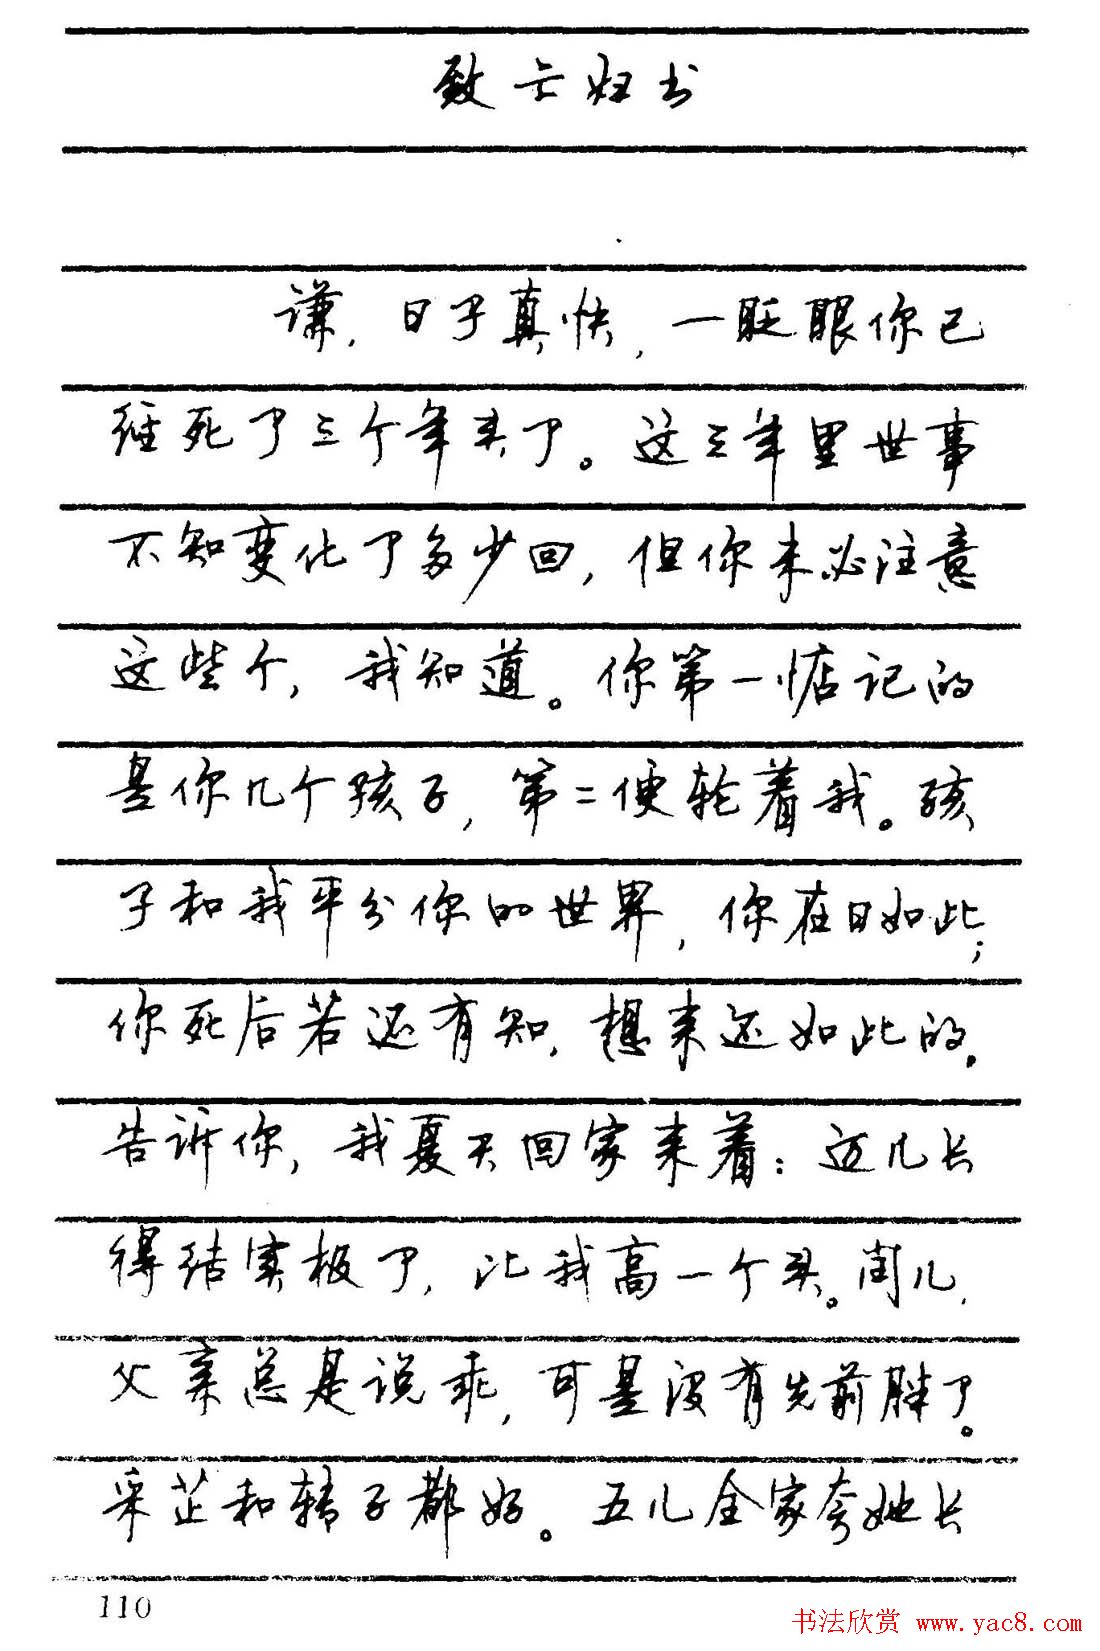 致亡妇书
谦，日子真快，一眨眼你已
经死了三个年头了。这三年里世事
不知变化了多少回，但你未必注意
这些个，我知道。你第一惦记的
是你几个孩子，第二便轮着我。孩
子和我平分你的世界，你在日如此；
你死后若还有知，想来还如此的。
告诉你，我夏天回家来着：迈儿长
得结实极了，比我高一个头。闰儿，
父亲总是说乖，可是没有先前胖了。
采芷和转子都好。五儿全家夸她长
110
书法欣赏 www.yac8.com